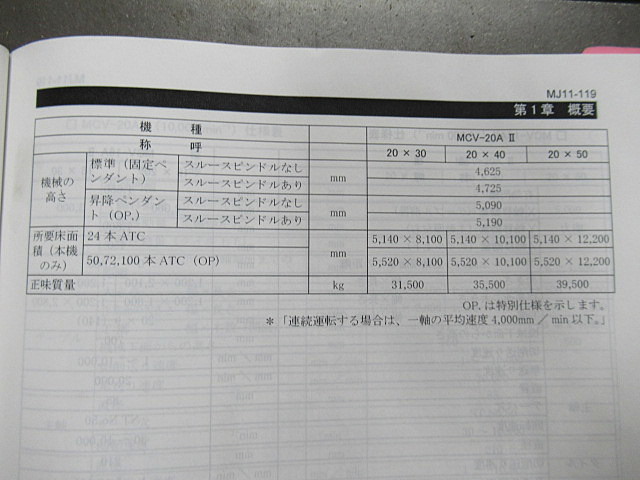 MJ11-119
第1章 概要
機種 MCV-20A Ⅱ
称呼 20×30 20×40 20×50
機械の高さ 標準（固定ペンダント） スルースピンドルなし mm 4,625
スルースピンドルあり 4,725
昇降ペンダント（OP.） スルースピンドルなし mm 5,090
スルースピンドルあり 5,190
所要床面積（本機のみ） 24本ATC mm 5,140×8,100 5,140×10,100 5,140×12,200
50,72,100本ATC（OP） 5,520×8,100 5,520×10,100 5,520×12,200
正味質量 kg 31,500 35,500 39,500
OP.は特別仕様を示します。
＊「連続運転する場合は、一軸の平均速度4,000mm／min以下。」